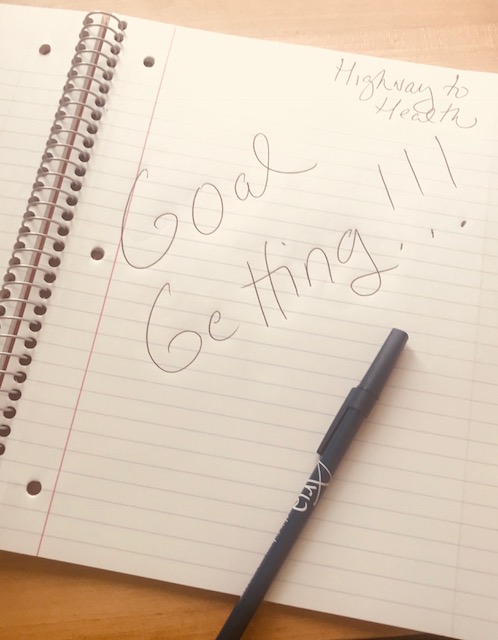 Highway to
Health
Goal
Getting!!!